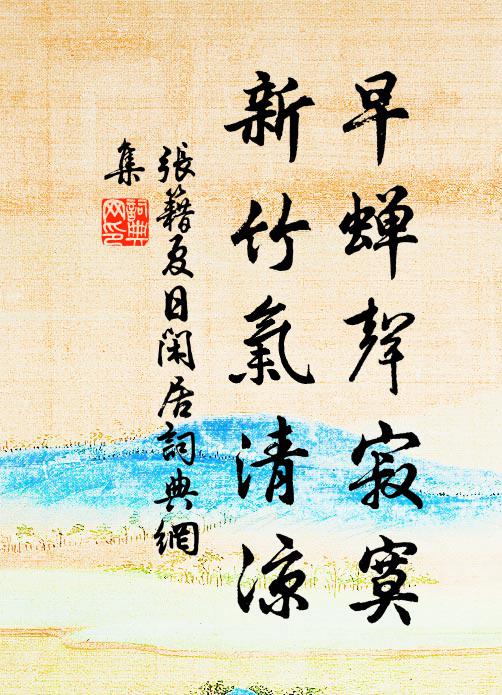 早蝉聲寂寞
新竹氣清涼
張籍夏日閑居詞典網
集
詞典
网印